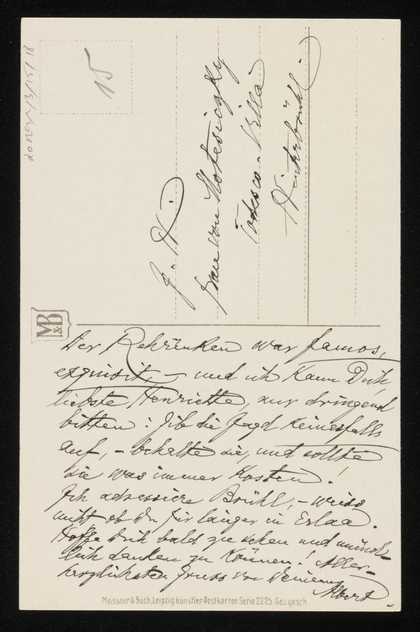 15
I. H.
Frau von Motesiczky
Todesco-Villa
Hinterbrühl
M&B
Der Rehrücken war famos,
exquisit, – und ich kann Dich,
liebste Henriette, nur dringend
bitten: Gib die Jagd keinesfalls
auf, – behalte sie, und sollte
sie was immer kosten!
Ich adressiere Brühl, – weiss
nicht ob Du für länger in Eslaa.
Hoffe Dich bald zu sehen und münd-
lich danken zu können! Aller-
herzlichsten Gruss von Deinem
Meissner & Buch, Leipzig Künstler-Postkarten Serie 2225. Ges. gesch.